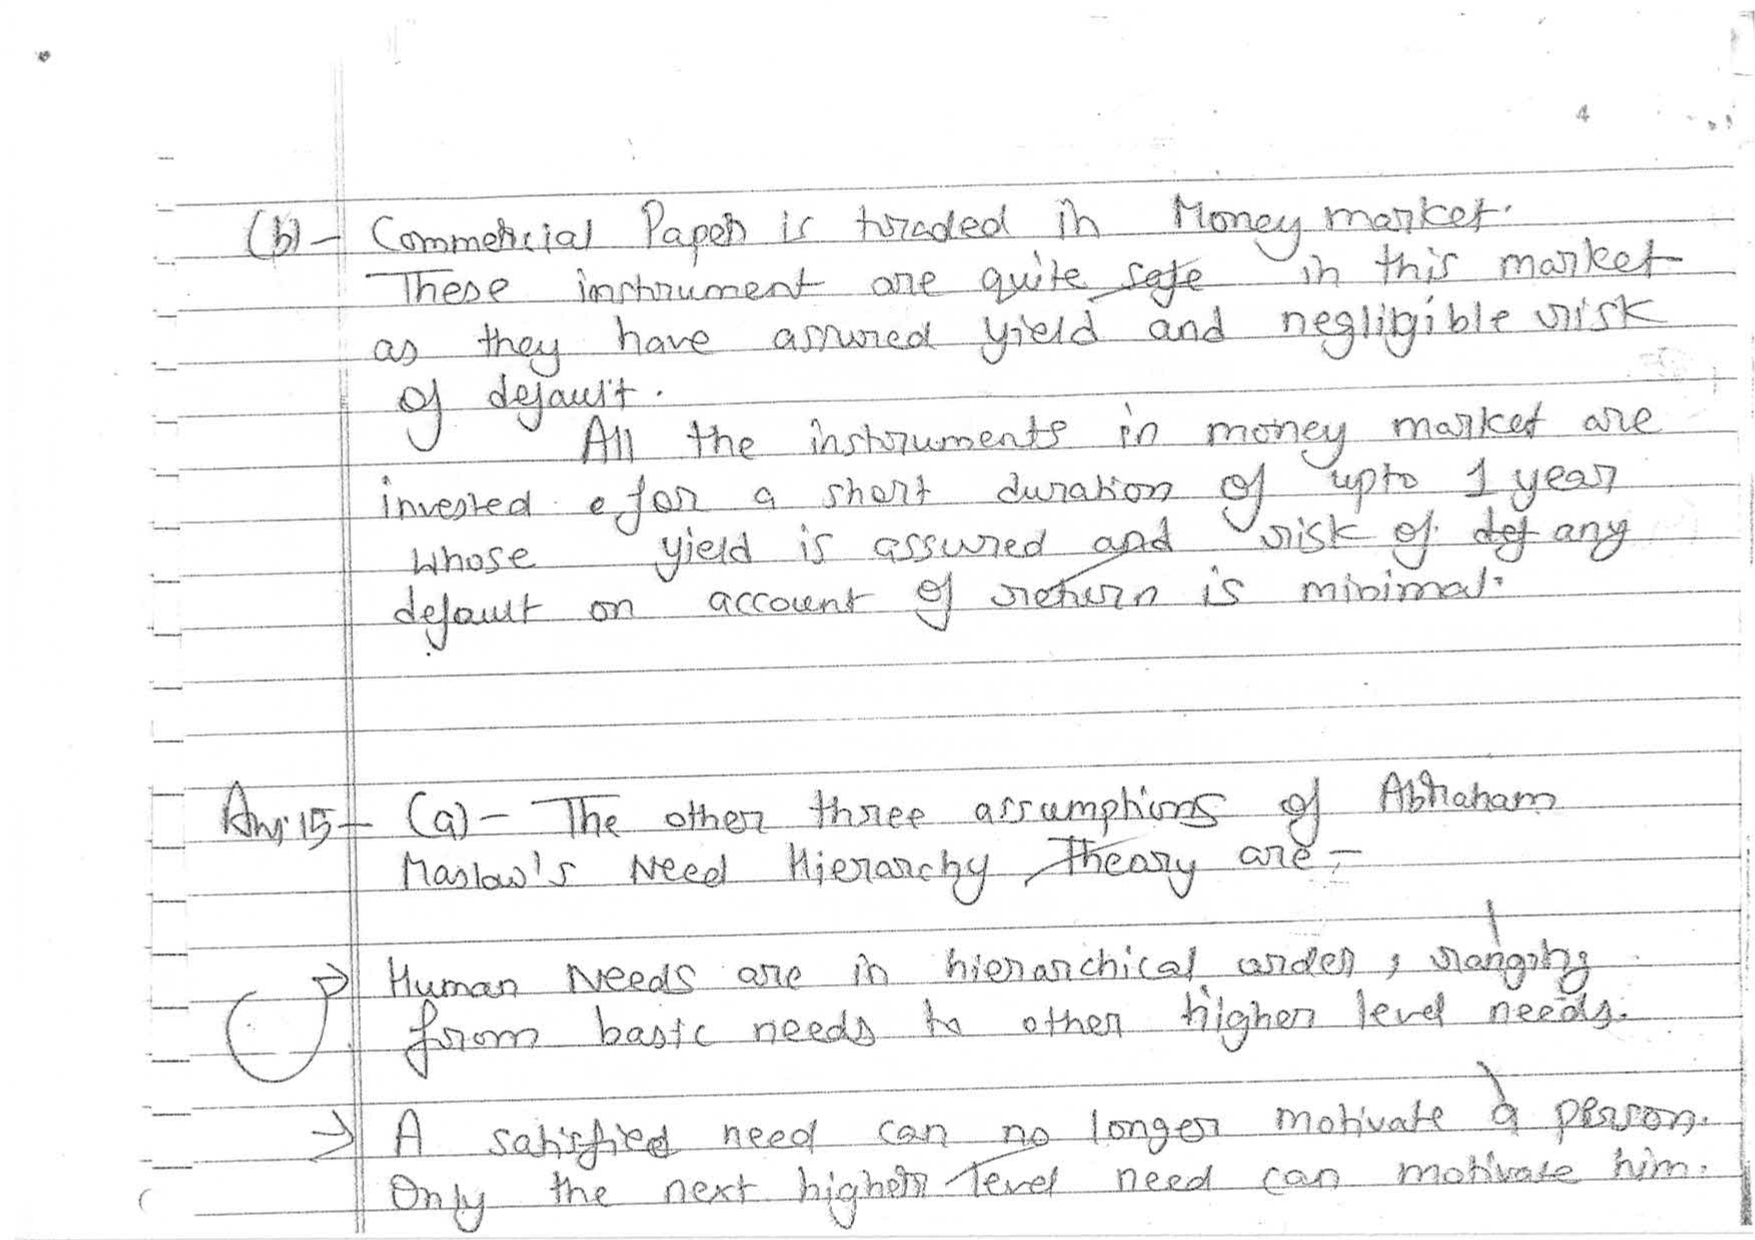 (b) - Commercial Paper is traded in Money market.
These instrument are quite safe in this market
as they have assured yield and negligible risk
of default.
All the instruments in money market are
invested for a short duration of upto 1 year
whose yield is assured and risk of def any
default on account of return is minimal.
Ans 15 - (a) - The other three assumptions of Abraham
Maslow's Need Hierarchy Theory are -
→ Human Needs are in hierarchical order, ranging
from basic needs to other higher level needs.
→ A satisfied need can no longer motivate a person.
Only the next higher level need can motivate him.